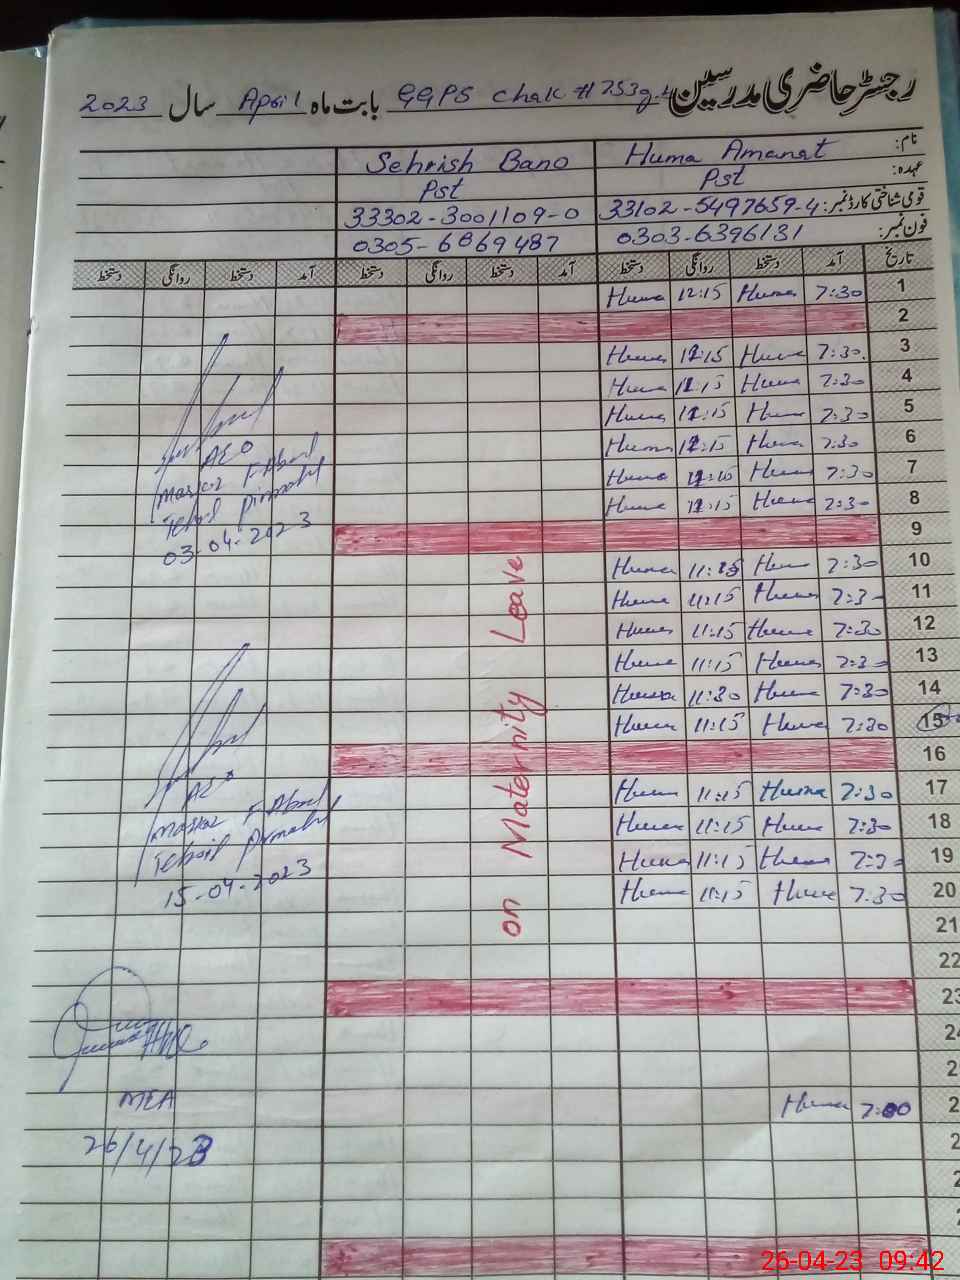 رجسٹر حاضری مدرسین GGPS Chak # 753 بابت ماہ April سال 2023
نام: Huma Amanat Sehrish Bano
عہدہ: Pst Pst
قومی شناختی کارڈ نمبر: 33102-5497659-4 33302-3001109-0
فون نمبر: 0303-6396131 0305-6869487
تاریخ آمد دستخط روانگی دستخط آمد دستخط روانگی دستخط آمد دستخط روانگی دستخط
1 7:30 Huma 12:15 Huma
2
3 7:30 Huma 12:15 Huma
4 7:30 Huma 12:15 Huma
5 7:30 Huma 12:15 Huma
6 7:30 Huma 12:15 Huma
7 7:30 Huma Huma
8 7:30 Huma 12:15 Huma
9
10 7:30 Huma 11:25 Huma
11 7:30 Huma 11:15 Huma
12 7:30 Huma 11:15 Huma
13 7:30 Huma 11:15 Huma
14 7:30 Huma 11:30 Huma
15 7:30 Huma 11:15 Huma
16
17 7:30 Huma 11:15 Huma
18 7:30 Huma 11:15 Huma
19 7:30 Huma 11:15 Huma
20 7:30 Huma 11:15 Huma
21
22
23
24
2
2 7:00 Huma
2
2
on Maternity Leave
AEO
Markaz
Tehsil Pirmahal
03-04-2023
AEO
Markaz
Tehsil Pirmahal
15-04-2023
MEA
26/4/23
25-04-23 09:42